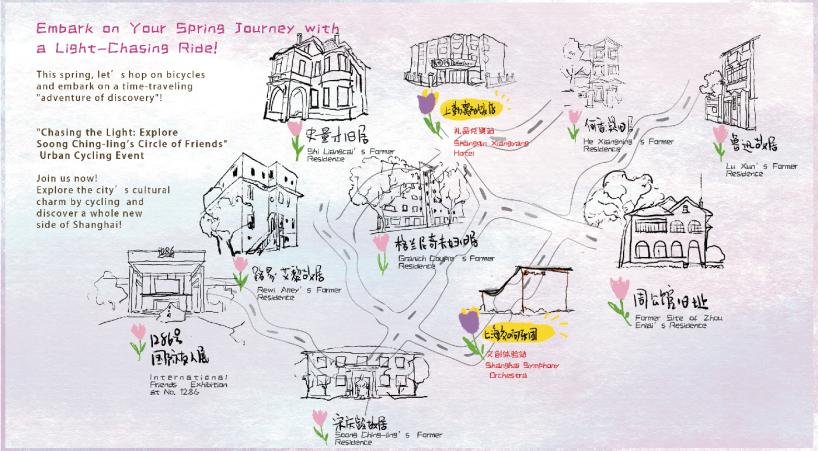 Embark on Your Spring Journey with
a Light-Chasing Ride!
This spring, let's hop on bicycles
and embark on a time-traveling
"adventure of discovery"!
"Chasing the Light: Explore
Soong Ching-ling's Circle of Friends"
Urban Cycling Event
Join us now!
Explore the city's cultural
charm by cycling and
discover a whole new
side of Shanghai!
史量才旧居
Shi Liangcai's Former
Residence
礼品兑换站
Shangan Xiangyang
Hotel
何香凝旧居
He Xiangning's Former
Residence
鲁迅故居
Lu Xun's Former
Residence
路易·艾黎故居
Rewi Alley's Former
Residence
格兰尼奇夫妇旧居
Residence
周公馆旧址
Former Site of Zhou
Enlai's Residence
1286
1286号
国际友人展
International
Friends Exhibition
at No. 1286
上海交响乐团
文创体验站
Shanghai Symphony
Orchestra
宋庆龄故居
Soong Ching-ling's Former
Residence